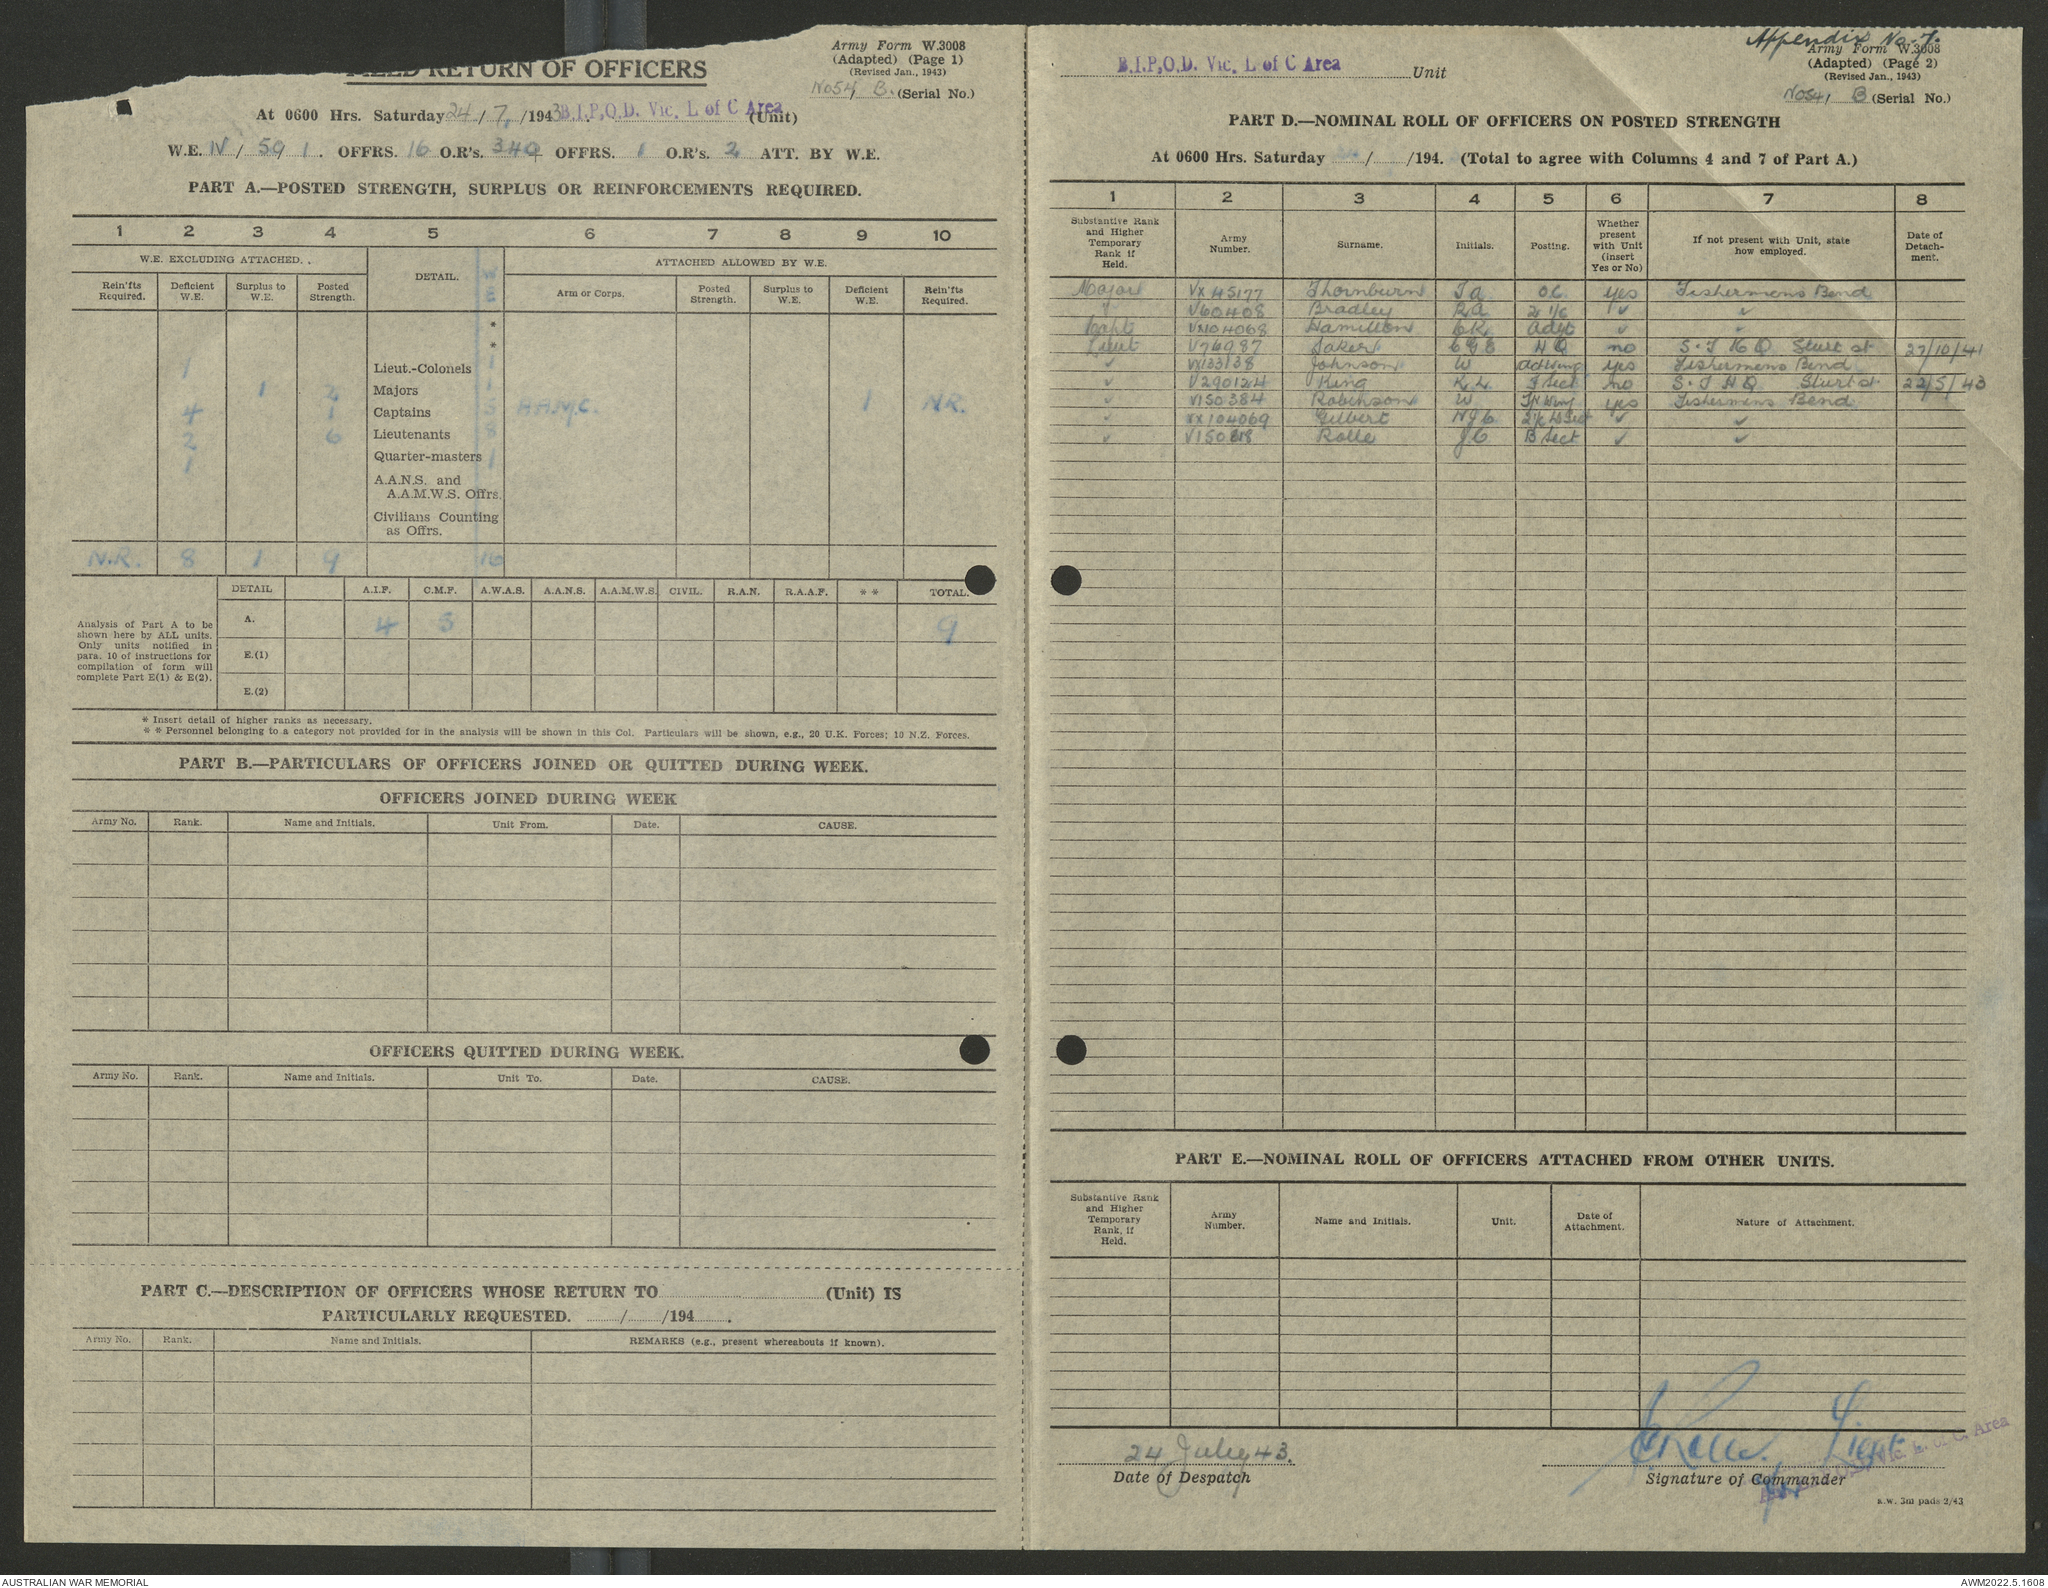 Army Form W.3008
(Adapted) (Page 1)
(Revised Jan., 1943)
No54, B. (Serial No.)
FIELD RETURN OF OFFICERS
At 0600 Hrs. Saturday 24/7/1943 B.I.P.O.D. Vic. L of C Area (Unit)
W.E. IV/591. OFFRS. 16 O.R's. 340 OFFRS. 1 O.R's. 2 ATT. BY W.E.
PART A.—POSTED STRENGTH, SURPLUS OR REINFORCEMENTS REQUIRED.
1 2 3 4 5 6 7 8 9 10
W.E. EXCLUDING ATTACHED. DETAIL. W.E. ATTACHED ALLOWED BY W.E.
Rein'fts Required. Deficient W.E. Surplus to W.E. Posted Strength. Arm or Corps. Posted Strength. Surplus to W.E. Deficient W.E. Rein'fts Required.
*
*
1 Lieut.-Colonels 1
1 2 Majors 1
4 1 Captains 5 A.A.M.C. 1 N.R.
2 6 Lieutenants 8
1 Quarter-masters 1
A.A.N.S. and
A.A.M.W.S. Offrs.
Civilians Counting
as Offrs.
N.R. 8 1 9 16
DETAIL A.I.F. C.M.F. A.W.A.S. A.A.N.S. A.A.M.W.S. CIVIL. R.A.N. R.A.A.F. * * TOTAL.
Analysis of Part A to be
shown here by ALL units.
Only units notified in
para. 10 of instructions for
compilation of form will
complete Part E(1) & E(2).
A. 4 9
E.(1)
E.(2)
* Insert detail of higher ranks as necessary.
* * Personnel belonging to a category not provided for in the analysis will be shown in this Col. Particulars will be shown, e.g., 20 U.K. Forces; 10 N.Z. Forces.
PART B.—PARTICULARS OF OFFICERS JOINED OR QUITTED DURING WEEK.
OFFICERS JOINED DURING WEEK
Army No. Rank. Name and Initials. Unit From. Date. CAUSE.
OFFICERS QUITTED DURING WEEK.
Army No. Rank. Name and Initials. Unit To. Date. CAUSE.
PART C.—DESCRIPTION OF OFFICERS WHOSE RETURN TO (Unit) IS
PARTICULARLY REQUESTED. / /194 .
Army No. Rank. Name and Initials. REMARKS (e.g., present whereabouts if known).
Appendix No. 7.
Army Form W.3008
(Adapted) (Page 2)
(Revised Jan., 1943)
No54, B (Serial No.)
B.I.P.O.D. Vic. L of C Area Unit
PART D.—NOMINAL ROLL OF OFFICERS ON POSTED STRENGTH
At 0600 Hrs. Saturday / /194. (Total to agree with Columns 4 and 7 of Part A.)
1 2 3 4 5 6 7 8
Substantive Rank and Higher Temporary Rank if Held. Army Number. Surname. Initials. Posting. Whether present with Unit (insert Yes or No) If not present with Unit, state how employed. Date of Detachment.
Major VX45177 Thornburn J a O.C. yes Fishermens Bend
✓ V60408 Bradley R.A. 2 i/c ✓ ✓
Capt Hamilton C.R. Adjt ✓ ✓
Lieut V76987 HQ no S.T H Q Sturt st 27/10/41
✓ VX133138 Johnson W yes Fishermens Bend
✓ V290124 King K.L. no S.T H.Q. Sturt st 22/5/43
✓ V150384 Robinson W yes Fishermens Bend
✓ VX104069 Gilbert ✓ ✓
✓ Rolle J C B Sect ✓ ✓
PART E.—NOMINAL ROLL OF OFFICERS ATTACHED FROM OTHER UNITS.
Substantive Rank and Higher Temporary Rank, if Held. Army Number. Name and Initials. Unit. Date of Attachment. Nature of Attachment.
24 July 43. Lieut
Date of Despatch Signature of Commander
Vic. L. of C. Area
R.W. 3m pads 2/43
AUSTRALIAN WAR MEMORIAL
AWM2022.5.1608